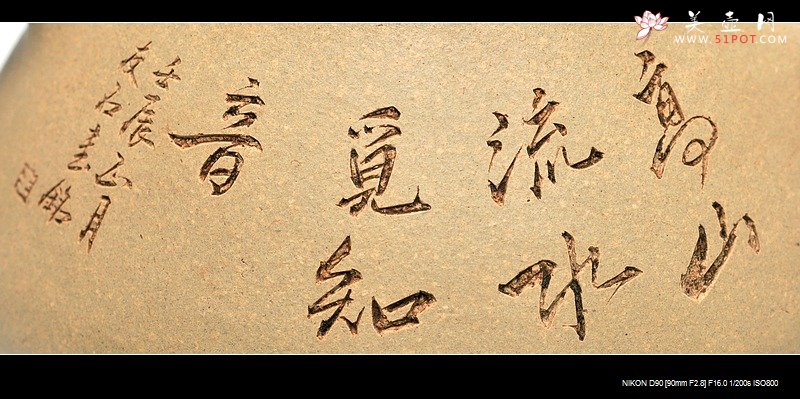 高山
流水
觅知
音
壬辰正月
友石書銘
美壶网
WWW.51POT.COM
NIKON D90 [90mm F2.8] F16.0 1/200s ISO800